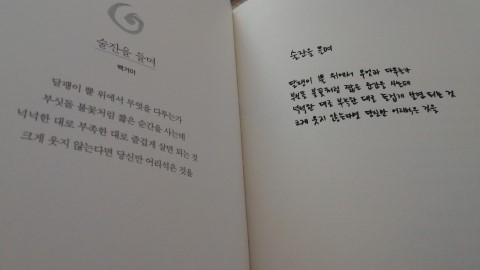 술잔을 들며
백거이
달팽이 뿔 위에서 무엇을 다투는가
부싯돌 불꽃처럼 짧은 순간을 사는데
넉넉한 대로 부족한 대로 즐겁게 살면 되는 것
크게 웃지 않는다면 당신만 어리석은 것을
술잔을 들며
달팽이 뿔 위에서 무엇과 다투는가
부싯돌 불꽃처럼 짧은 순간을 사는데
넉넉한 대로 부족한 대로 즐겁게 살면 되는 것
크게 웃지 않는다면 당신만 어리석은 것을